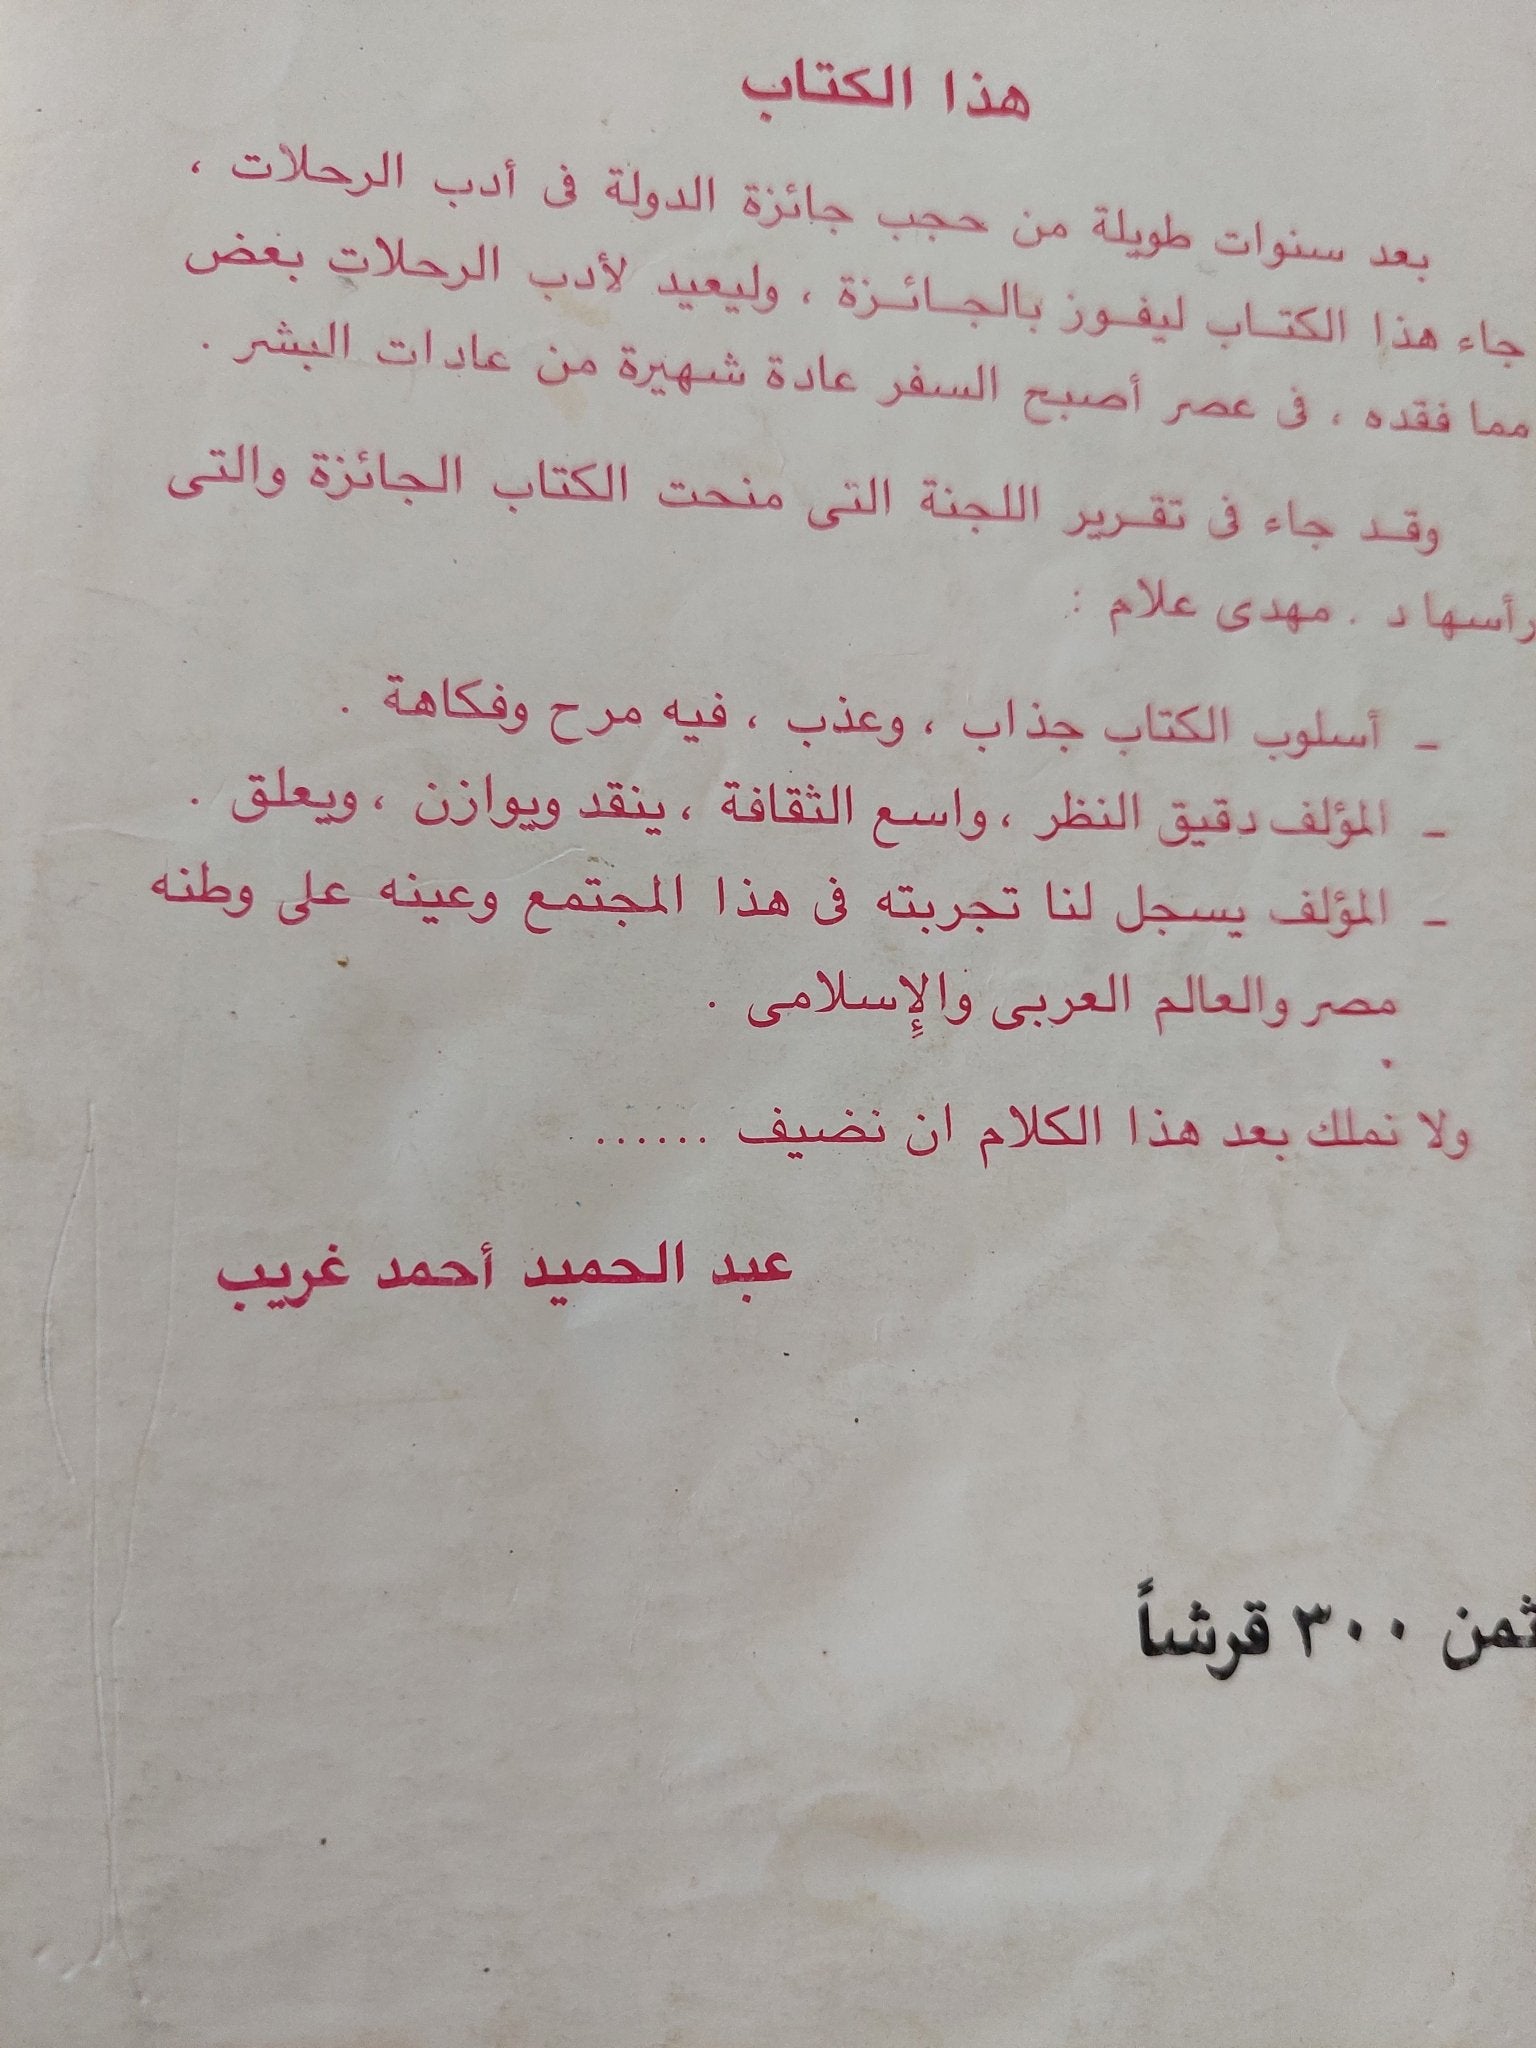 هذا الكتاب
بعد سنوات طويلة من حجب جائزة الدولة فى أدب الرحلات ،
جاء هذا الكتـاب ليفـوز بالجـائـزة ، وليعيد لأدب الرحلات بعض
مما فقده ، فى عصر أصبح السفر عادة شهيرة من عادات البشر .
وقـد جاء فى تقـرير اللجنة التى منحت الكتاب الجائزة والتى
رأسها د . مهدى علام :
- أسلوب الكتاب جذاب ، وعذب ، فيه مرح وفكاهة .
- المؤلف دقيق النظر ، واسع الثقافة ، ينقد ويوازن ، ويعلق .
- المؤلف يسجل لنا تجربته فى هذا المجتمع وعينه على وطنه
مصر والعالم العربى والإسلامى .
ولا نملك بعد هذا الكلام ان نضيف ......
عبد الحميد أحمد غريب
ثمن ٣٠٠ قرشاً